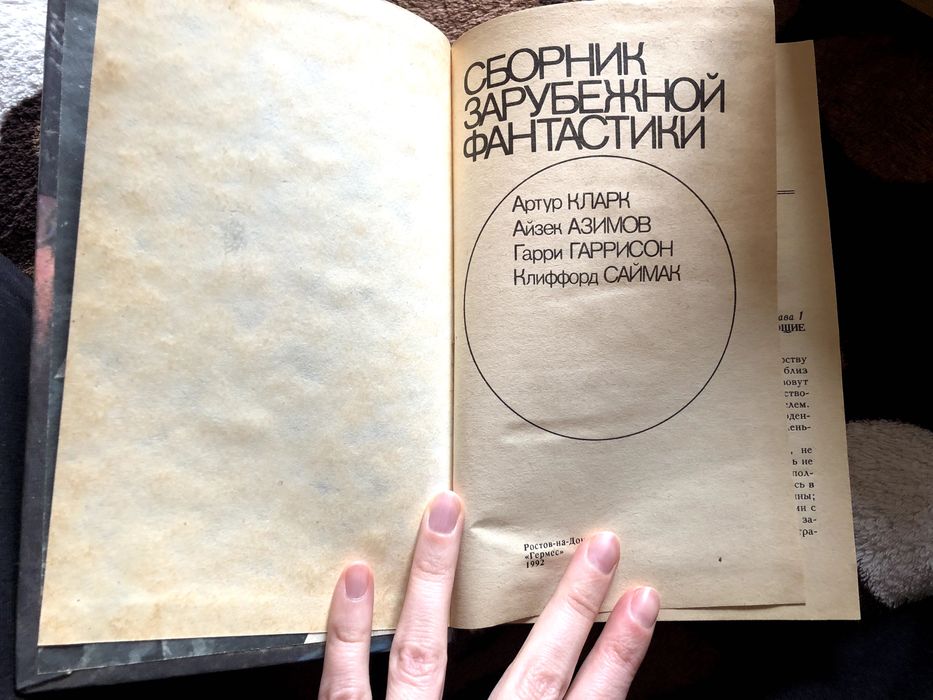 СБОРНИК
ЗАРУБЕЖНОЙ
ФАНТАСТИКИ
Артур КЛАРК
Айзек АЗИМОВ
Гарри ГАРРИСОН
Клиффорд САЙМАК
Ростов-на-Дон
«Гермес»
1992
ава 1
ЩИЕ
рству
близ
зовут
ство-
лем.
ден-
ень-
, не
ь не
пол-
сь в
ны;
и с
за-
ра-